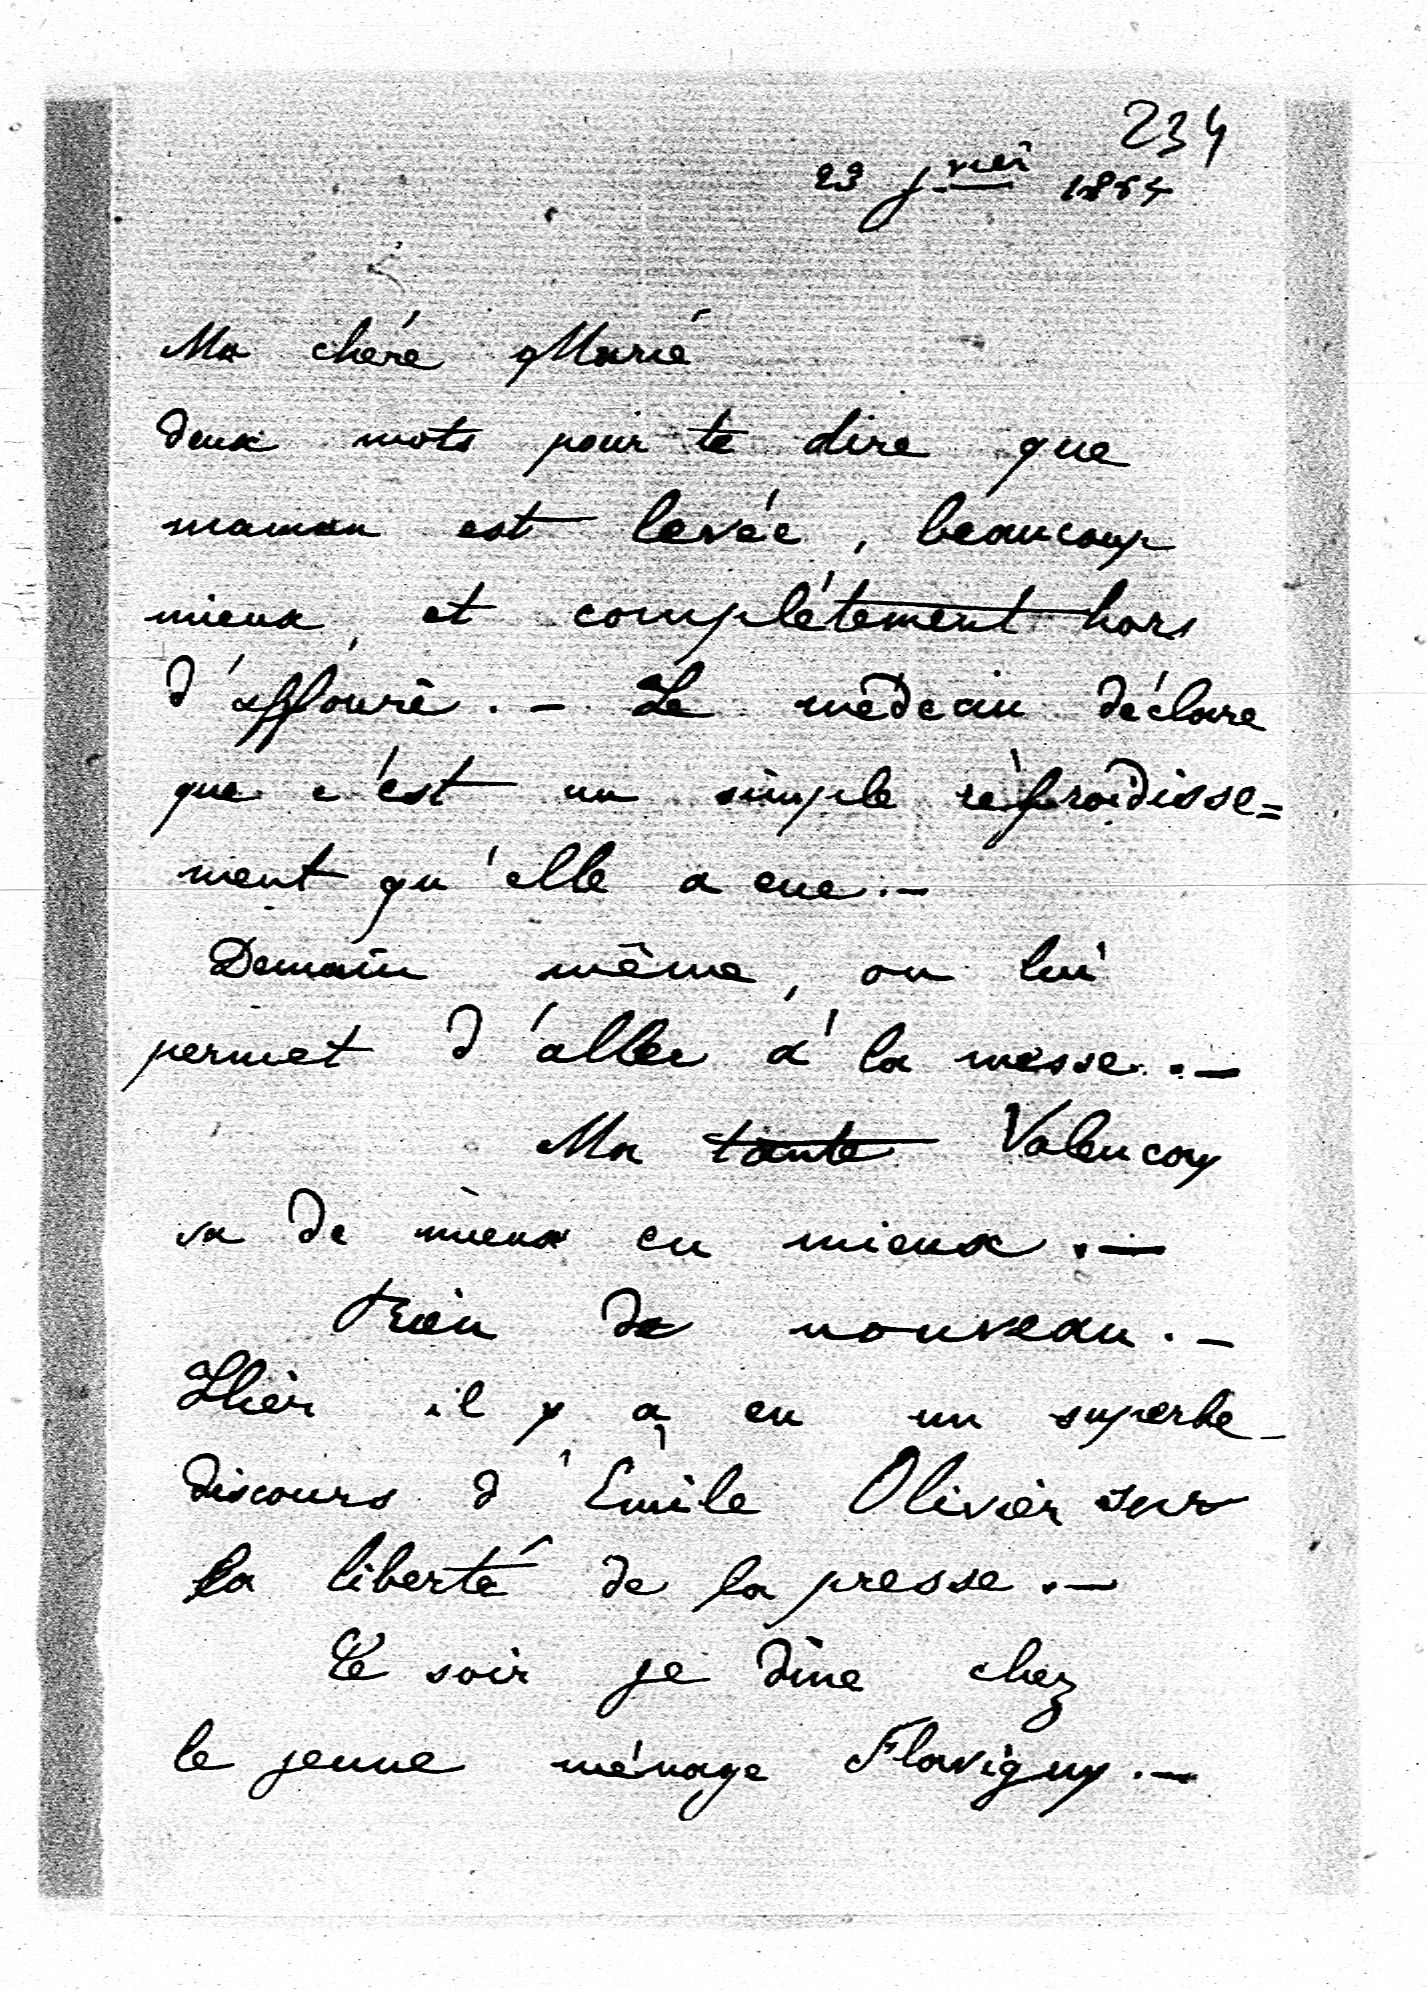 234
23 jvier 1864
Ma chère Marie
deux mots pour te dire que
maman est levée, beaucoup
mieux, et complétement hors
d'affaire. - Le médecin déclare
que c'est un simple refroidisse=
ment qu'elle a eue. -
Demain même, on lui
permet d'aller à la messe. -
Ma tante Valencay
va de mieux en mieux. -
Rien de nouveau. -
Hier il y a eu un superbe
discours d'Emile Olivier sur
la liberté de la presse. -
Ce soir je dîne chez
le jeune ménage Flavigny. -